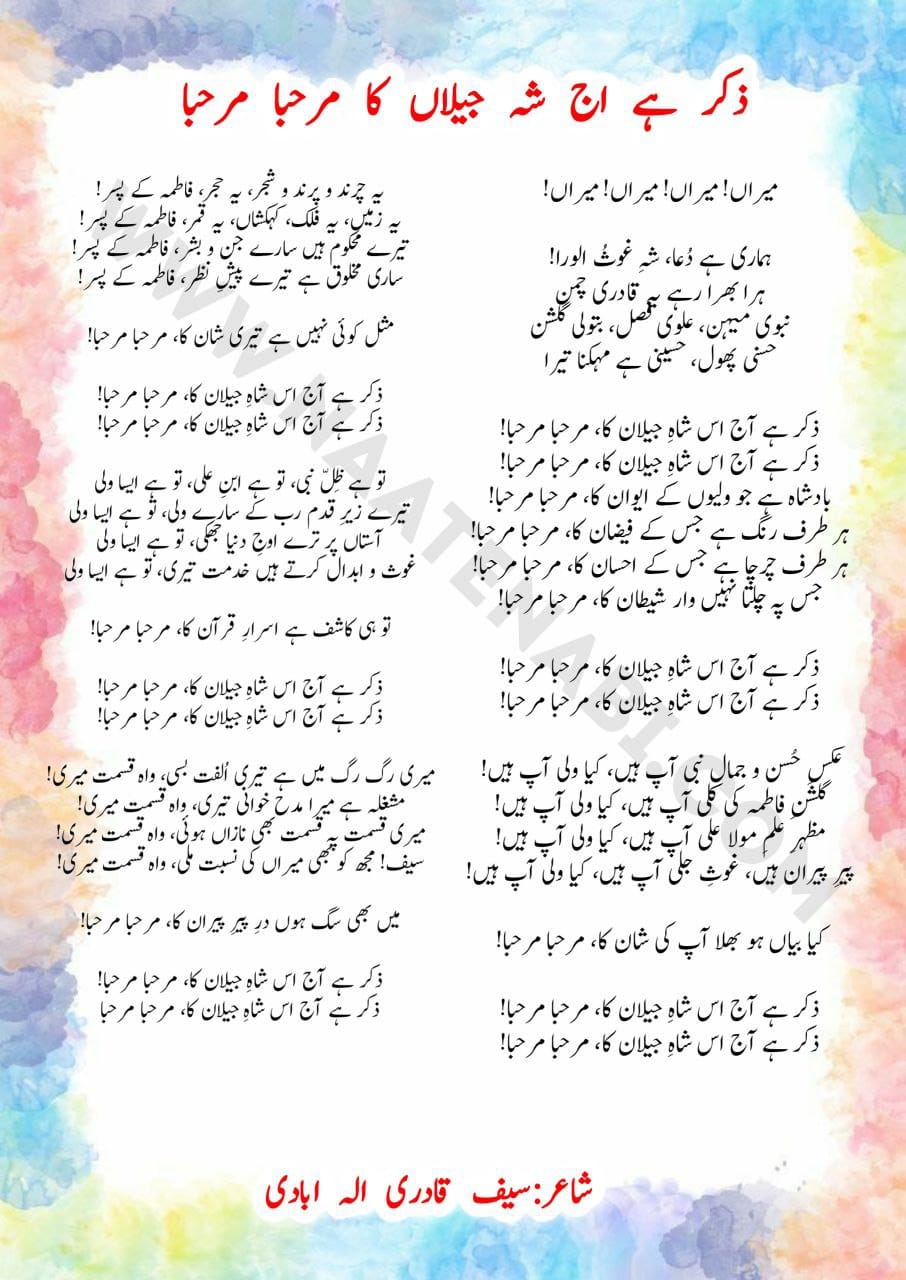 ذکر ہے اج شہ جیلاں کا مرحبا مرحبا
میراں! میراں! میراں! میراں!
ہماری ہے دُعا، شہِ غوثُ الورا!
ہرا بھرا رہے یہ قادری چمن
نبوی میہن، علوی فصل، بتولی گلشن
حسنی پھول، حسینی ہے مہکنا تیرا
ذکر ہے آج اس شاہِ جیلان کا، مرحبا مرحبا!
ذکر ہے آج اس شاہِ جیلان کا، مرحبا مرحبا!
بادشاہ ہے جو ولیوں کے ایوان کا، مرحبا مرحبا!
ہر طرف رنگ ہے جس کے فیضان کا، مرحبا مرحبا!
ہر طرف چرچا ہے جس کے احسان کا، مرحبا مرحبا!
جس پہ چلتا نہیں وار شیطان کا، مرحبا مرحبا!
ذکر ہے آج اس شاہِ جیلان کا، مرحبا مرحبا!
ذکر ہے آج اس شاہِ جیلان کا، مرحبا مرحبا!
عکسِ حُسن و جمالِ نبی آپ ہیں، کیا ولی آپ ہیں!
گلشنِ فاطمہ کی کلی آپ ہیں، کیا ولی آپ ہیں!
مظہرِ علمِ مولا علی آپ ہیں، کیا ولی آپ ہیں!
پیرِ پیران ہیں، غوثِ جلی آپ ہیں، کیا ولی آپ ہیں!
کیا بیاں ہو بھلا آپ کی شان کا، مرحبا مرحبا!
ذکر ہے آج اس شاہِ جیلان کا، مرحبا مرحبا!
ذکر ہے آج اس شاہِ جیلان کا، مرحبا مرحبا!
یہ چرند و پرند و شجر، یہ حجر، فاطمہ کے پسر!
یہ زمیں، یہ فلک، کہکشاں، یہ قمر، فاطمہ کے پسر!
تیرے محکوم ہیں سارے جن و بشر، فاطمہ کے پسر!
ساری مخلوق ہے تیرے پیشِ نظر، فاطمہ کے پسر!
مثل کوئی نہیں ہے تیری شان کا، مرحبا مرحبا!
ذکر ہے آج اس شاہِ جیلان کا، مرحبا مرحبا!
ذکر ہے آج اس شاہِ جیلان کا، مرحبا مرحبا!
تو ہے ظِلِّ نبی، تو ہے ابنِ علی، تو ہے ایسا ولی
تیرے زیرِ قدم رب کے سارے ولی، تو ہے ایسا ولی
آستاں پر ترے اوجِ دنیا جھکی، تو ہے ایسا ولی
غوث و ابدال کرتے ہیں خدمت تیری، تو ہے ایسا ولی
تو ہی کاشف ہے اسرارِ قرآن کا، مرحبا مرحبا!
ذکر ہے آج اس شاہِ جیلان کا، مرحبا مرحبا!
ذکر ہے آج اس شاہِ جیلان کا، مرحبا مرحبا!
میری رگ رگ میں ہے تیری اُلفت بسی، واہ قسمت میری!
مشغلہ ہے میرا مدح خوانی تیری، واہ قسمت میری!
میری قسمت پہ قسمت بھی نازاں ہوئی، واہ قسمت میری!
سیف! مجھ کو بھی میراں کی نسبت ملی، واہ قسمت میری!
میں بھی سگ ہوں درِ پیرِ پیران کا، مرحبا مرحبا!
ذکر ہے آج اس شاہِ جیلان کا، مرحبا مرحبا!
ذکر ہے آج اس شاہِ جیلان کا، مرحبا مرحبا
شاعر:سیف قادری الہ ابادی
WWW.NAATENABI.COM